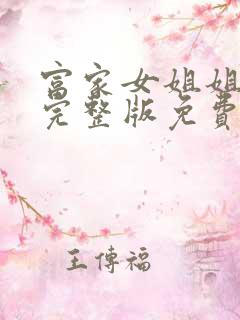 富家女姐姐
完整版免费
王傳福